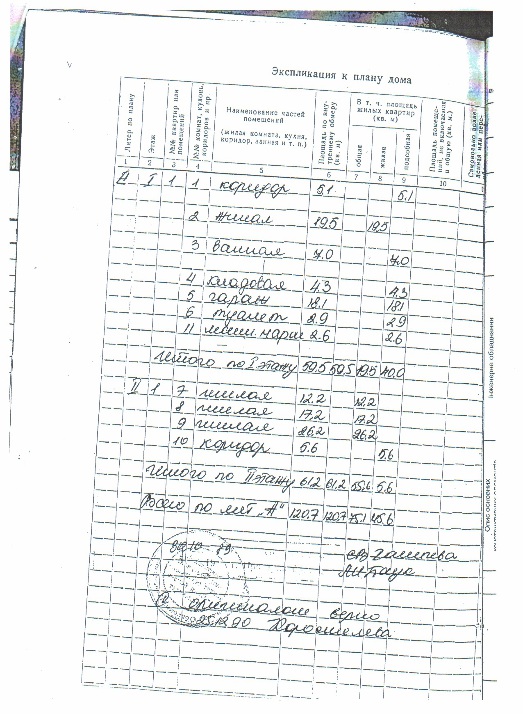 Экспликация к плану дома
Литер по плану
Этаж
№№ квартир или помещений
№№ комнат, кухонь, коридоров и пр
Наименование частей помещений (жилая комната, кухня, коридор, ванная и т. п.)
Площадь по внутреннему обмеру (кв. м)
В т. ч. площадь жилых квартир (кв. м)
общая
жилая
подсобная
Самовольно
1 2 3 4 5 6 7 8 9 10
А I 1 1 коридор 5.1 5.1
2 жилая 19.5 19.5
3 ванная 7.0 7.0
4 кладовая 4.3 4.3
5 гараж 18.1 18.1
6 туалет 2.9 2.9
11 лестн. марш 2.6 2.6
Итого по I этажу 59.5 59.5 19.5 40.0
II 1 7 жилая 12.2 12.2
8 жилая 17.2 17.2
9 жилая 26.2 26.2
10 коридор 5.6 5.6
Итого по II этажу 61.2 61.2 55.6 5.6
Всего по лит „А" 120.7 120.7 75.1 45.6
С оригиналом верно